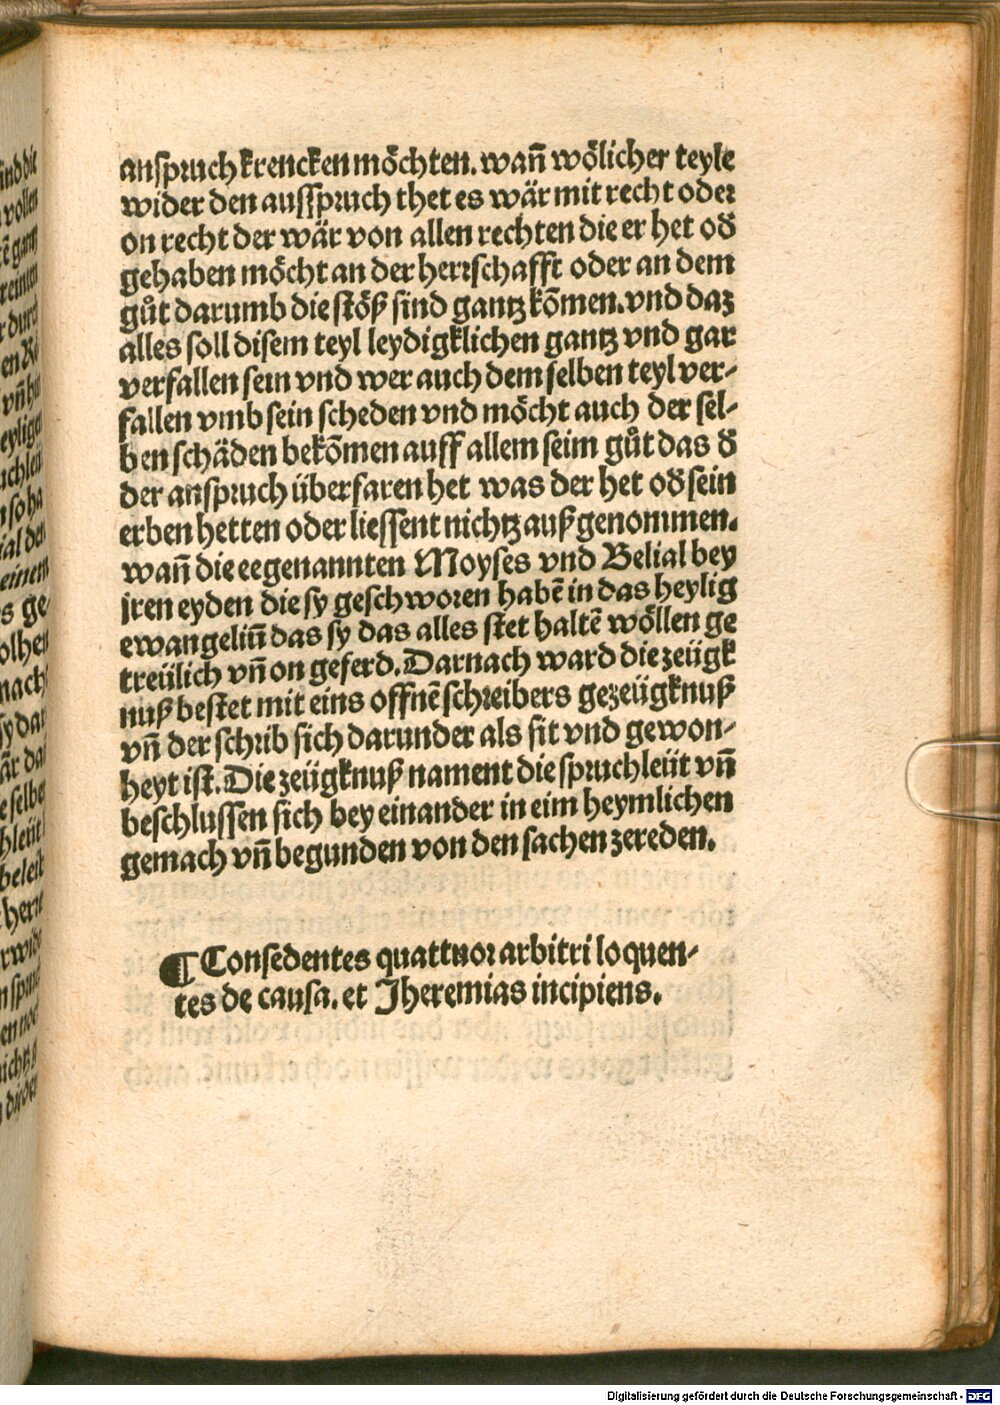 anspruch krencken möchten. wañ wölicher teyle
wider den ausspruch thet es wär mit recht oder
on recht der wär von allen rechten die er het oď
gehaben möcht an der herrschafft oder an dem
gůt darumb die stöß sind gantz kōmen. vnd daz
alles soll disem teyl leydigklichen gantz vnd gar
verfallen sein vnd wer auch dem selben teyl ver-
fallen vmb sein scheden vnd möcht auch der sel-
ben schäden bekōmen auff allem seim gůt das ď
der anspruch überfaren het was der het oď sein
erben hetten oder liessent nichtz auß genommen.
wañ die eegenannten Moyses vnd Belial bey
jren eyden die sy geschworen habē in das heylig
ewangeliū das sy das alles stet haltē wöllen ge
treülich vñ on geferd. Darnach ward die zeügk
nuß bestet mit eins offnē schreibers gezeügknuß
vñ der schrib sich darunder als sit vnd gewon-
heyt ist. Die zeügknuß nament die spruchleüt vñ
beschlussen sich bey einander in eim heymlichen
gemach vñ begunden von den sachen zereden.
¶ Consedentes quattuor arbitri loquen-
tes de causa. et Jheremias incipiens.
Digitalisierung gefördert durch die Deutsche Forschungsgemeinschaft - DFG